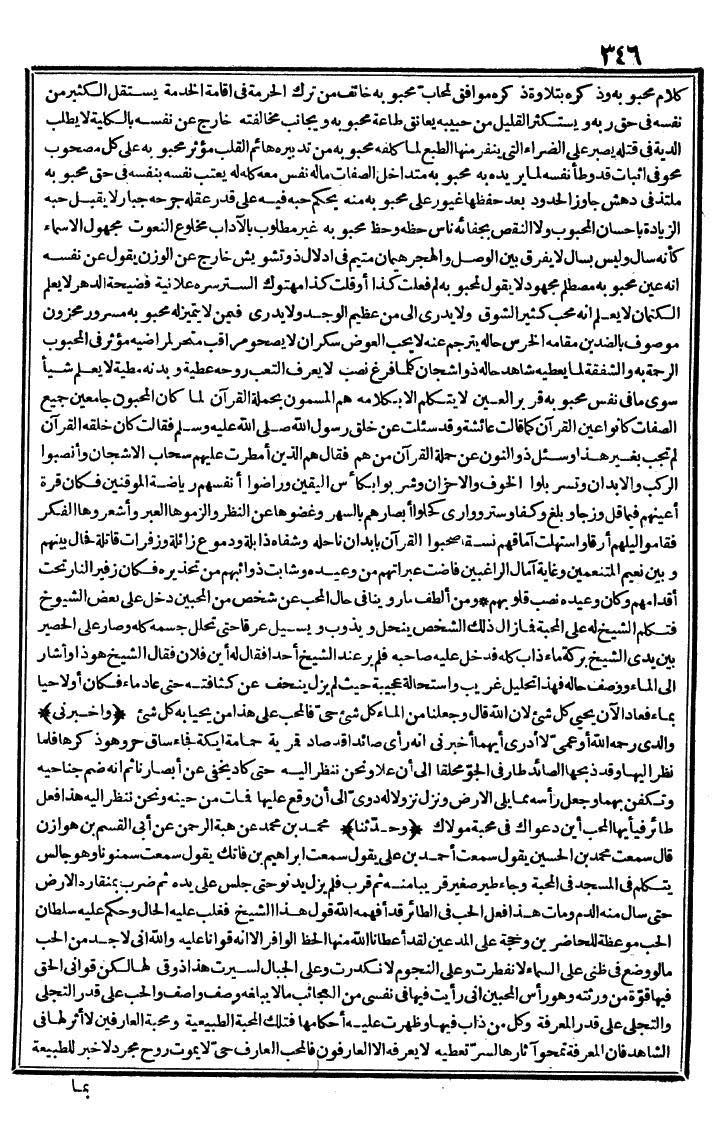 ٣٤٦
كلام محبوبه وذكره بتلاوة ذكره موافق لمحاب محبوبه خائف من ترك الحرمة فى اقامة الخدمة يستقل الكثير من
نفسه فى حق ربه ويستكثر القليل من حبيبه يعانق طاعة محبوبه ويجانب مخالفته خارج عن نفسه بالكلية لا يطلب
الدية فى قتله يصبر على الضراء التى ينفر منها الطبع لما كلفه محبوبه من تدبيره هائم القلب مؤثر محبوبه على كل مصحوب
محو فى اثبات قد وطأ نفسه لما يريده به محبوبه متداخل الصفات ماله نفس معه كله له يعتب نفسه بنفسه فى حق محبوبه
ملتذ فى دهش جاوز الحدود بعد حفظها غيور على محبوبه منه يحكم حبه فيه على قدر عقله جرحه جبار لا يقبل حبه
الزيادة باحسان المحبوب ولا النقص بجفائه ناس حظه وحظ محبوبه غير مطلوب بالآداب مخلوع النعوت مجهول الاسماء
كأنه سال وليس بسال لا يفرق بين الوصل والهجر هيمان متيم فى ادلال ذو تشويش خارج عن الوزن يقول عن نفسه
انه عين محبوبه مصطلم مجهود لا يقول لمحبوبه لم فعلت كذا أو قلت كذا مهتوك الستر سره علانية فضيحة الدهر لا يعلم
الكتمان لا يعلم انه محب كثير الشوق ولا يدرى الى من عظيم الوجد ولا يدرى فيمن لا يتميز له محبوبه مسرور محزون
موصوف بالضدين مقامه الخرس حاله يترجم عنه لا يحب العوض سكران لا يصحو مراقب متحر لمراضيه مؤثر فى المحبوب
الرحمة به والشفقة لما يعطيه شاهد حاله ذو اشجان كلما فرغ نصب لا يعرف التعب روحه عطية وبدنه مطية لا يعلم شيأ
سوى ما فى نفس محبوبه قرير العين لا يتكلم الا بكلامه هم المسمون بحملة القرآن لما كان المحبون جامعين جميع
الصفات كانوا عين القرآن كما قالت عائشة وقد سئلت عن خلق رسول الله صلى الله عليه وسلم فقالت كان خلقه القرآن
لم تجب بغير هذا وسئل ذو النون عن حملة القرآن من هم فقال هم الذين أمطرت عليهم سحاب الاشجان وأنصبوا
الركب والابدان وتسربلوا الخوف والاحزان وشربوا بكأس اليقين وراضوا أنفسهم رياضة الموقنين فكان قرة
أعينهم فيما قل وزجا وبلغ وكفا وستر ووارى كحلوا أبصارهم بالسهر وغضوها عن النظر وألزموها العبر وأشعروها الفكر
فقاموا ليلهم أرقا واستهلت آماقهم نسقا صحبوا القرآن بابدان ناحلة وشفاه ذابلة ودموع زائلة وزفرات قاتلة فحال بينهم
وبين نعيم المتنعمين وغاية آمال الراغبين فاضت عبراتهم من وعيده وشابت ذوائبهم من تحذيره فكان زفير النار تحت
أقدامهم وكان وعيده نصب قلوبهم * ومن ألطف ما روينا فى حال المحب عن شخص من المحبين دخل على بعض الشيوخ
فتكلم الشيخ له على المحبة فما زال ذلك الشخص ينحل ويذوب ويسيل عرقا حتى تحلل جسمه كله وصار على الحصير
بين يدى الشيخ بركة ماء ذاب كله فدخل عليه صاحبه فلم ير عند الشيخ أحدا فقال له أين فلان فقال الشيخ هوذا وأشار
الى الماء ووصف حاله فهذا تحليل غريب واستحالة عجيبة حيث لم يزل ينحف عن كثافته حتى عاد ماء فكان أولا حيا
بماء فعاد الآن يحيى كل شئ لان الله قال وجعلنا من الماء كل شئ حى فالمحب على هذا من يحيا به كل شئ ﴿واخبرنى﴾
والدى رحمه الله أو عمى لا أدرى أيهما أخبرنى انه رأى صائدا قد صاد قمرية حمامة ايكة فجاء ساق حر وهو ذكرها فلما
نظر اليها وقد ذبحها الصائد طار فى الجو محلقا الى أن علا ونحن ننظر اليه حتى كاد يخفى عن أبصارنا ثم انه ضم جناحيه
وتكفن بهما وجعل رأسه مما يلى الارض ونزل نزولا له دوى الى أن وقع عليها فمات من حينه ونحن ننظر اليه هذا فعل
طائر فيأيها المحب أين دعواك فى محبة مولاك ﴿وحدثنا﴾ محمد بن محمد عن هبة الرحمن عن أبى القسم بن هوازن
قال سمعت محمد بن الحسين يقول سمعت أحمد بن على يقول سمعت ابراهيم بن فاتك يقول سمعت سمنونا وهو جالس
يتكلم فى المسجد فى المحبة وجاء طير صغير قريبا منه ثم قرب فلم يزل يدنو حتى جلس على يده ثم ضرب بمنقاره الارض
حتى سال منه الدم ومات هذا فعل الحب فى الطائر قد أفهمه الله قول هذا الشيخ فغلب عليه الحال وحكم عليه سلطان
الحب موعظة للحاضرين وحجة على المدعين لقد أعطانا الله منها الحظ الوافر الا انه قوانا عليه والله انى لاجد من الحب
مالو وضع فى ظنى على السماء لانفطرت وعلى النجوم لانكدرت وعلى الجبال لسيرت هذا ذوقى لها لكن قوانى الحق
فيها قوة من ورثته وهو رأس المحبين انى رأيت فيها فى نفسى من العجائب مالا يبلغه وصف واصف والحب على قدر التجلى
والتجلى على قدر المعرفة وكل من ذاب فيها وظهرت عليه أحكامها فتلك المحبة الطبيعية ومحبة العارفين لا أثر لها فى
الشاهد فان المعرفة تمحو آثارها لسر تعطيه لا يعرفه الا العارفون فالمحب العارف حى لا يموت روح مجرد لا خبر للطبيعة
بما